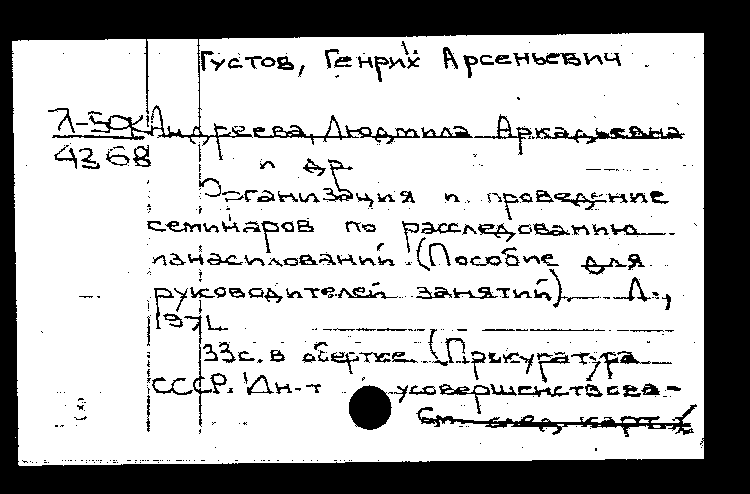 Густов, Генрих Арсеньевич
Л-50К Андреева, Людмила Аркадьевна
4268 и др.
Организация и проведение
семинаров по расследованию
изнасилований. (Пособие для
руководителей занятий). Л.,
197
33с. в обертке. (Прокуратура
СССР. Ин-т усовершенствова-
См. след. карт.